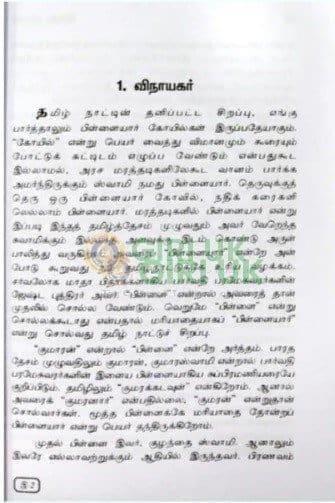 1. விநாயகர்
தமிழ் நாட்டின் தனிப்பட்ட சிறப்பு, எங்கு
பார்த்தாலும் பிள்ளையார் கோயில்கள் இருப்பதேயாகும்.
“கோயில்” என்று பெயர் வைத்து விமானமும் கூரையும்
போட்டுக் கட்டிடம் எழுப்ப வேண்டும் என்பதுகூட
இல்லாமல், அரச மரத்தடிகளிலேகூட வானம் பார்க்க
அமர்ந்திருக்கும் ஸ்வாமி நமது பிள்ளையார். தெருவுக்குத்
தெரு ஒரு பிள்ளையார் கோவில், நதிக் கரைகளி
லெல்லாம் பிள்ளையார். மரத்தடிகளில் பிள்ளையார் என்று
இப்படி இந்தத் தமிழ்த்தேசம் முழுவதும் அவர் வேறெந்த
ஸ்வாமிக்கும் கோயில் கொண்டு அருள்
பாலித்து வருகிறார். “பிள்ளையார்” என்றே அன்
போடு கூறுவது தமிழ்நாட்டுக்கே வழக்கம்.
சர்வலோக மாதா பிதாக்களான பார்வதி பரமேசுவரர்களின்
ஜேஷ்ட புத்திரர் அவர். “பிள்ளை” என்றால் அவரைத் தான்
முதலில் சொல்ல வேண்டும். வெறுமே “பிள்ளை” என்று
சொல்லக்கூடாது என்பதால் மரியாதையாகப் “பிள்ளையார்”
என்று சொல்வது தமிழ் நாட்டுச் சிறப்பு.
“குமாரன்” என்றால் “பிள்ளை” என்றே அர்த்தம். பாரத
தேசம் முழுவதிலும் குமாரன், குமாரஸ்வாமி என்றால் பார்வதி
பரமேசுவரர்களின் இளைய பிள்ளையாகிய சுப்பிரமணியரையே
குறிப்பிடும். தமிழிலும் “குமரக்கடவுள்” என்கிறோம். ஆனால்
அவரைக் “குமரனார்” என்பதில்லை, “குமரன்” என்றுதான்
சொல்வார்கள். மூத்த பிள்ளைக்கே மரியாதை தோன்றப்
பிள்ளையார் என்று பெயர் தந்திருக்கிறோம்.
முதல் பிள்ளை இவர், குழந்தை ஸ்வாமி. ஆனாலும்
இவரே எல்லாவற்றுக்கும் ஆதியில் இருந்தவர். பிரணவம்
இ-2